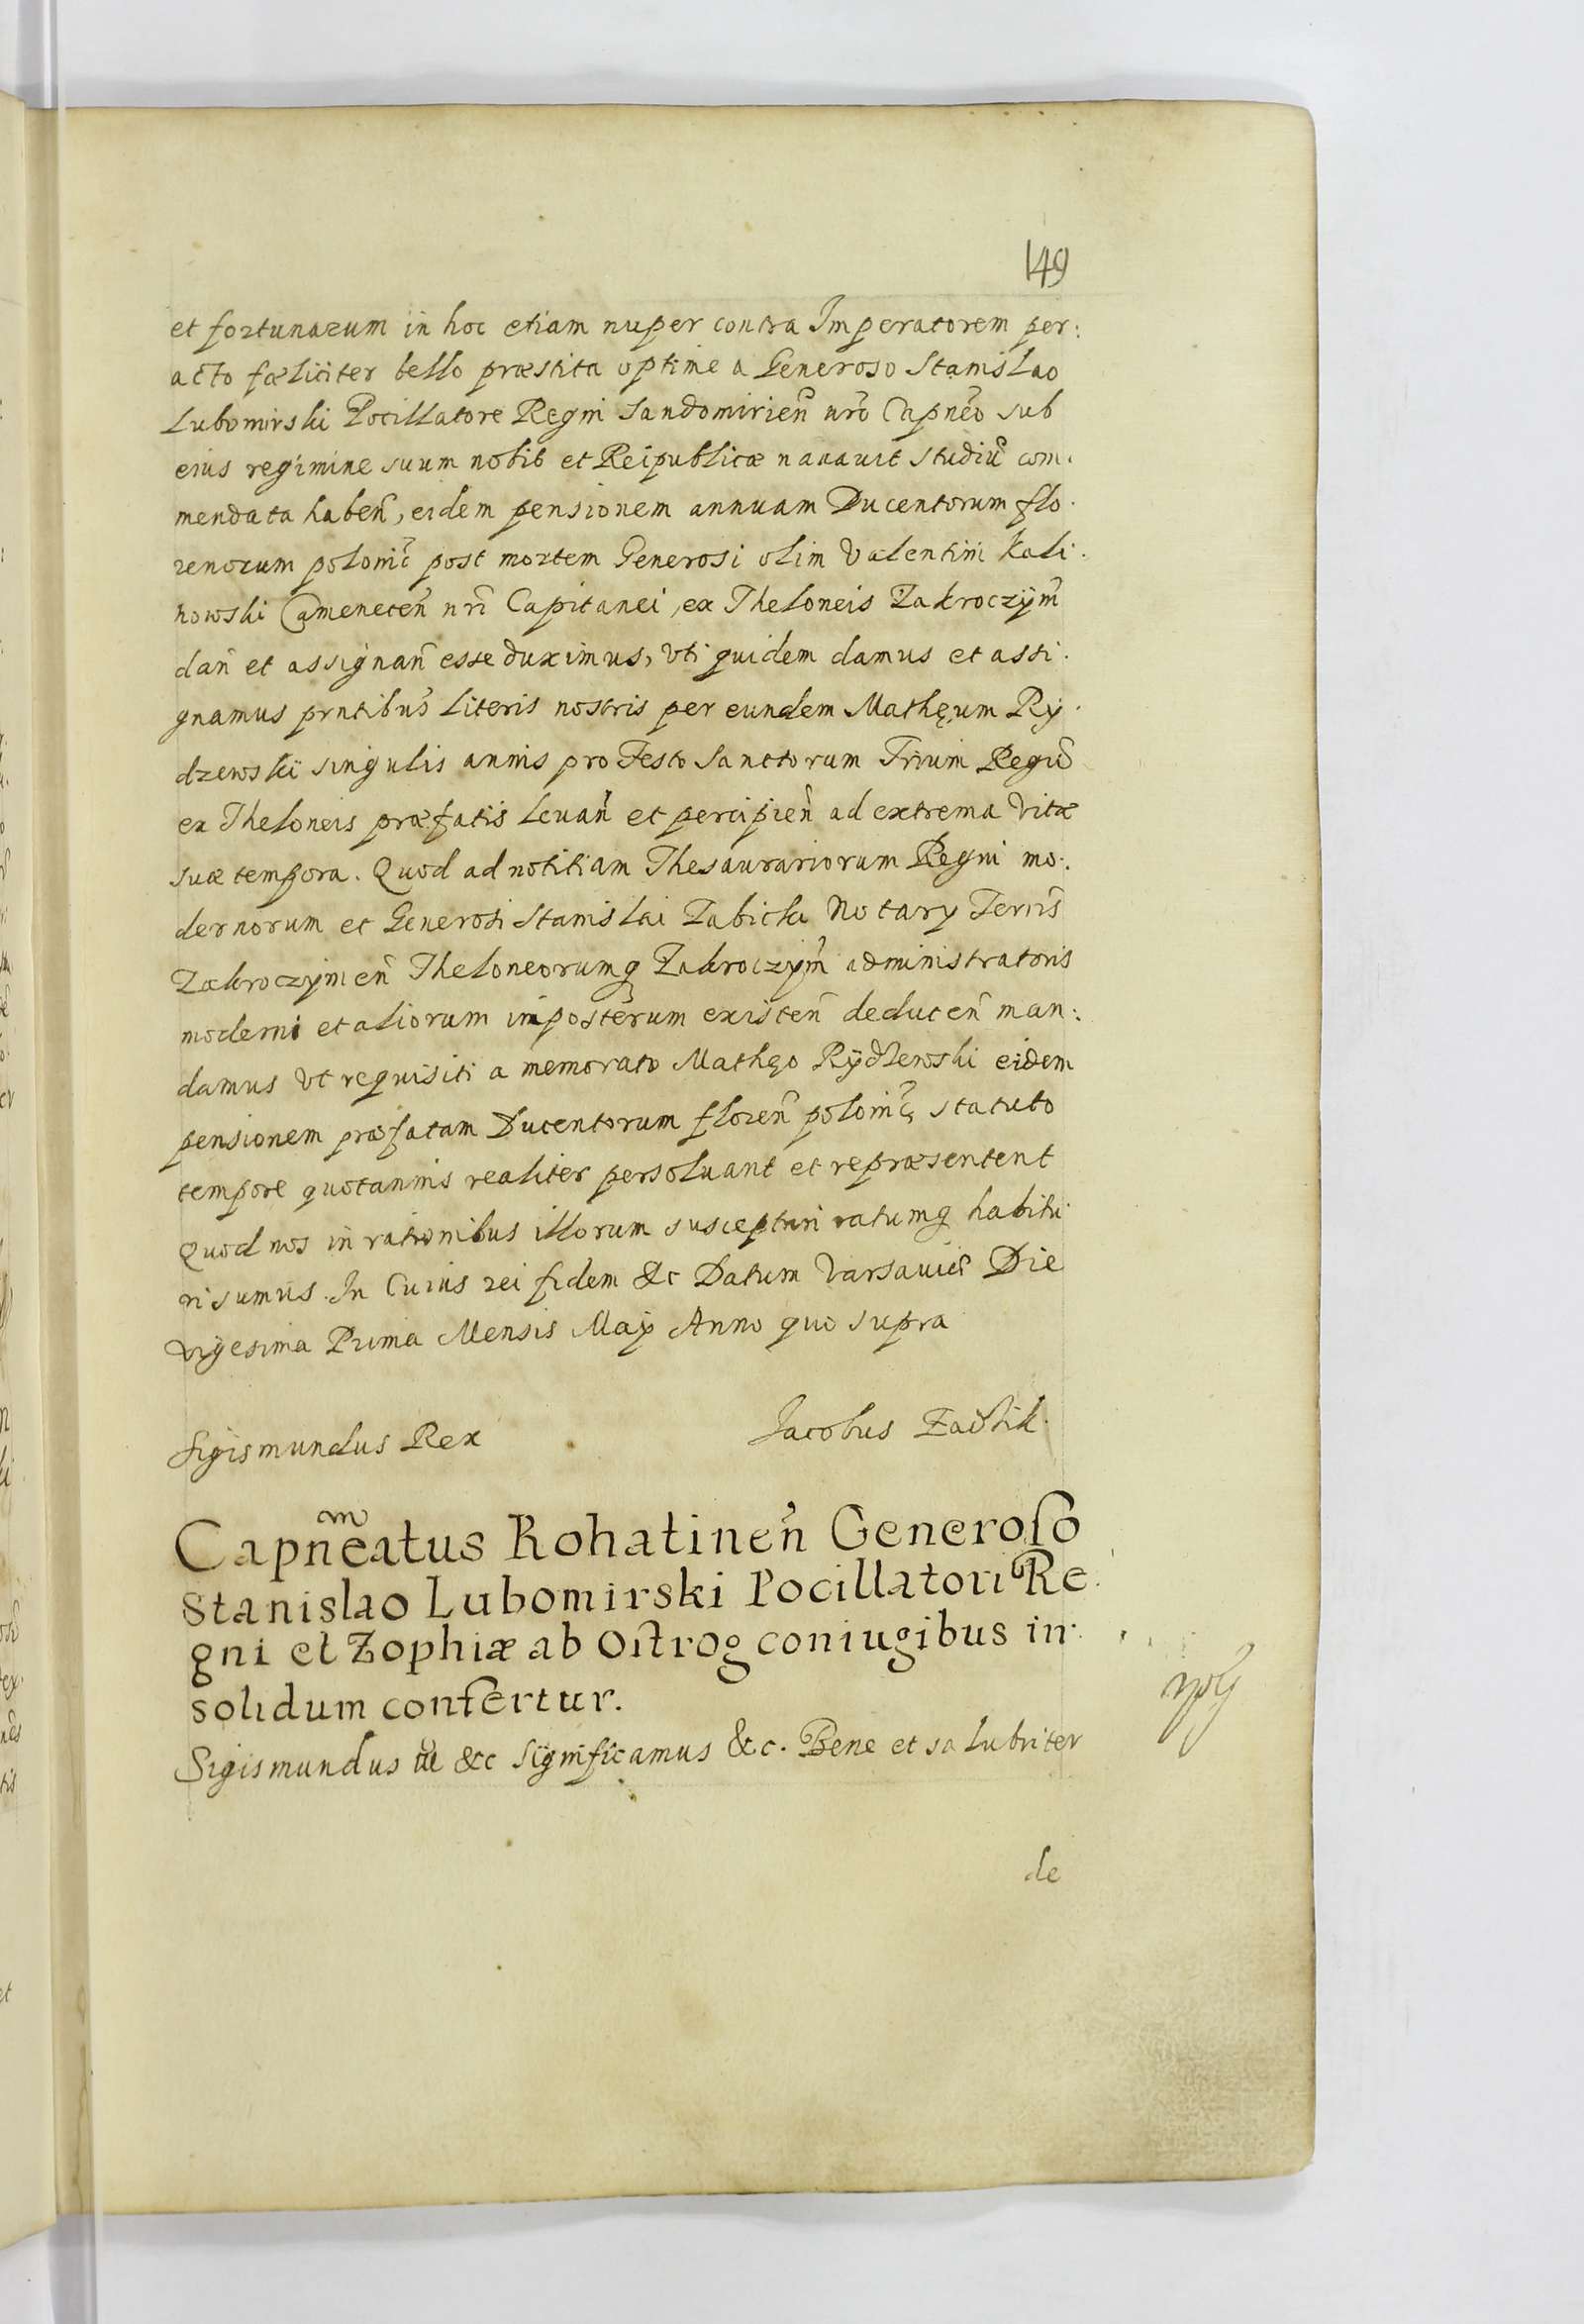 149
et fortunarum in hoc etiam nuper contra Imperatorem per:
acto fæliciter bello præstita optime a Generoso Stanislao
Lubomirski Pocillatore Regni Sandomirien̄ nr̄o Capn̄eo sub
eius regimine suum nobis et Reipublicæ nauauit studiū com.
mendata haben̄, eidem pensionem annuam Ducentorum flo.
renorum polonic̄ post mortem Generosi olim Valentini Kali.
nowski Camenecen̄ nr̄i Capitanei, ex Theloneis Zakroczÿm̄
dan̄ et assignan̄ esse duximus, vti quidem damus et assi.
gnamus prntibus literis nostris per eundem Mathęum Rÿ.
dzewski singulis annis pro Festo Sanctorum Trium Regū
ex Theloneis præfatis leuan̄ et percipien̄ ad extrema vitæ
suæ tempora. Quod ad notitiam Thesaurariorum Regni mo:
dernorum et Generosi Stanislai Zabicki Notarÿ Terris̄
Zakroczÿmen̄ Theloneorumq Zakroczÿm̄ administratoris
moderni et aliorum imposterum existen̄ deducen̄ man:
damus vt requisiti a memorato Mathęo Rÿdzewski eidem
pensionem præfatam Ducentorum floren̄ polonic̄ statuto
tempore quotannis realiter persoluant et repræsentent
Quod nos in rationibus illorum suscepturi ratumq habitu
ri sumus. In Cuius rei fidem &c Datum Varsauię Die
vigesima Prima Mensis Maÿ Anno quo supra
Sigismundus Rex Jacobus Zadzik.
Capn̄eatus Rohatinen̄ Generoso
Stanislao Lubomirski Pocillatori Re.
gni et Zophiæ ab Ostrog coniugibus in
solidum confertur.
Sigismundus &c Significamus &c. Bene et salubriter
de